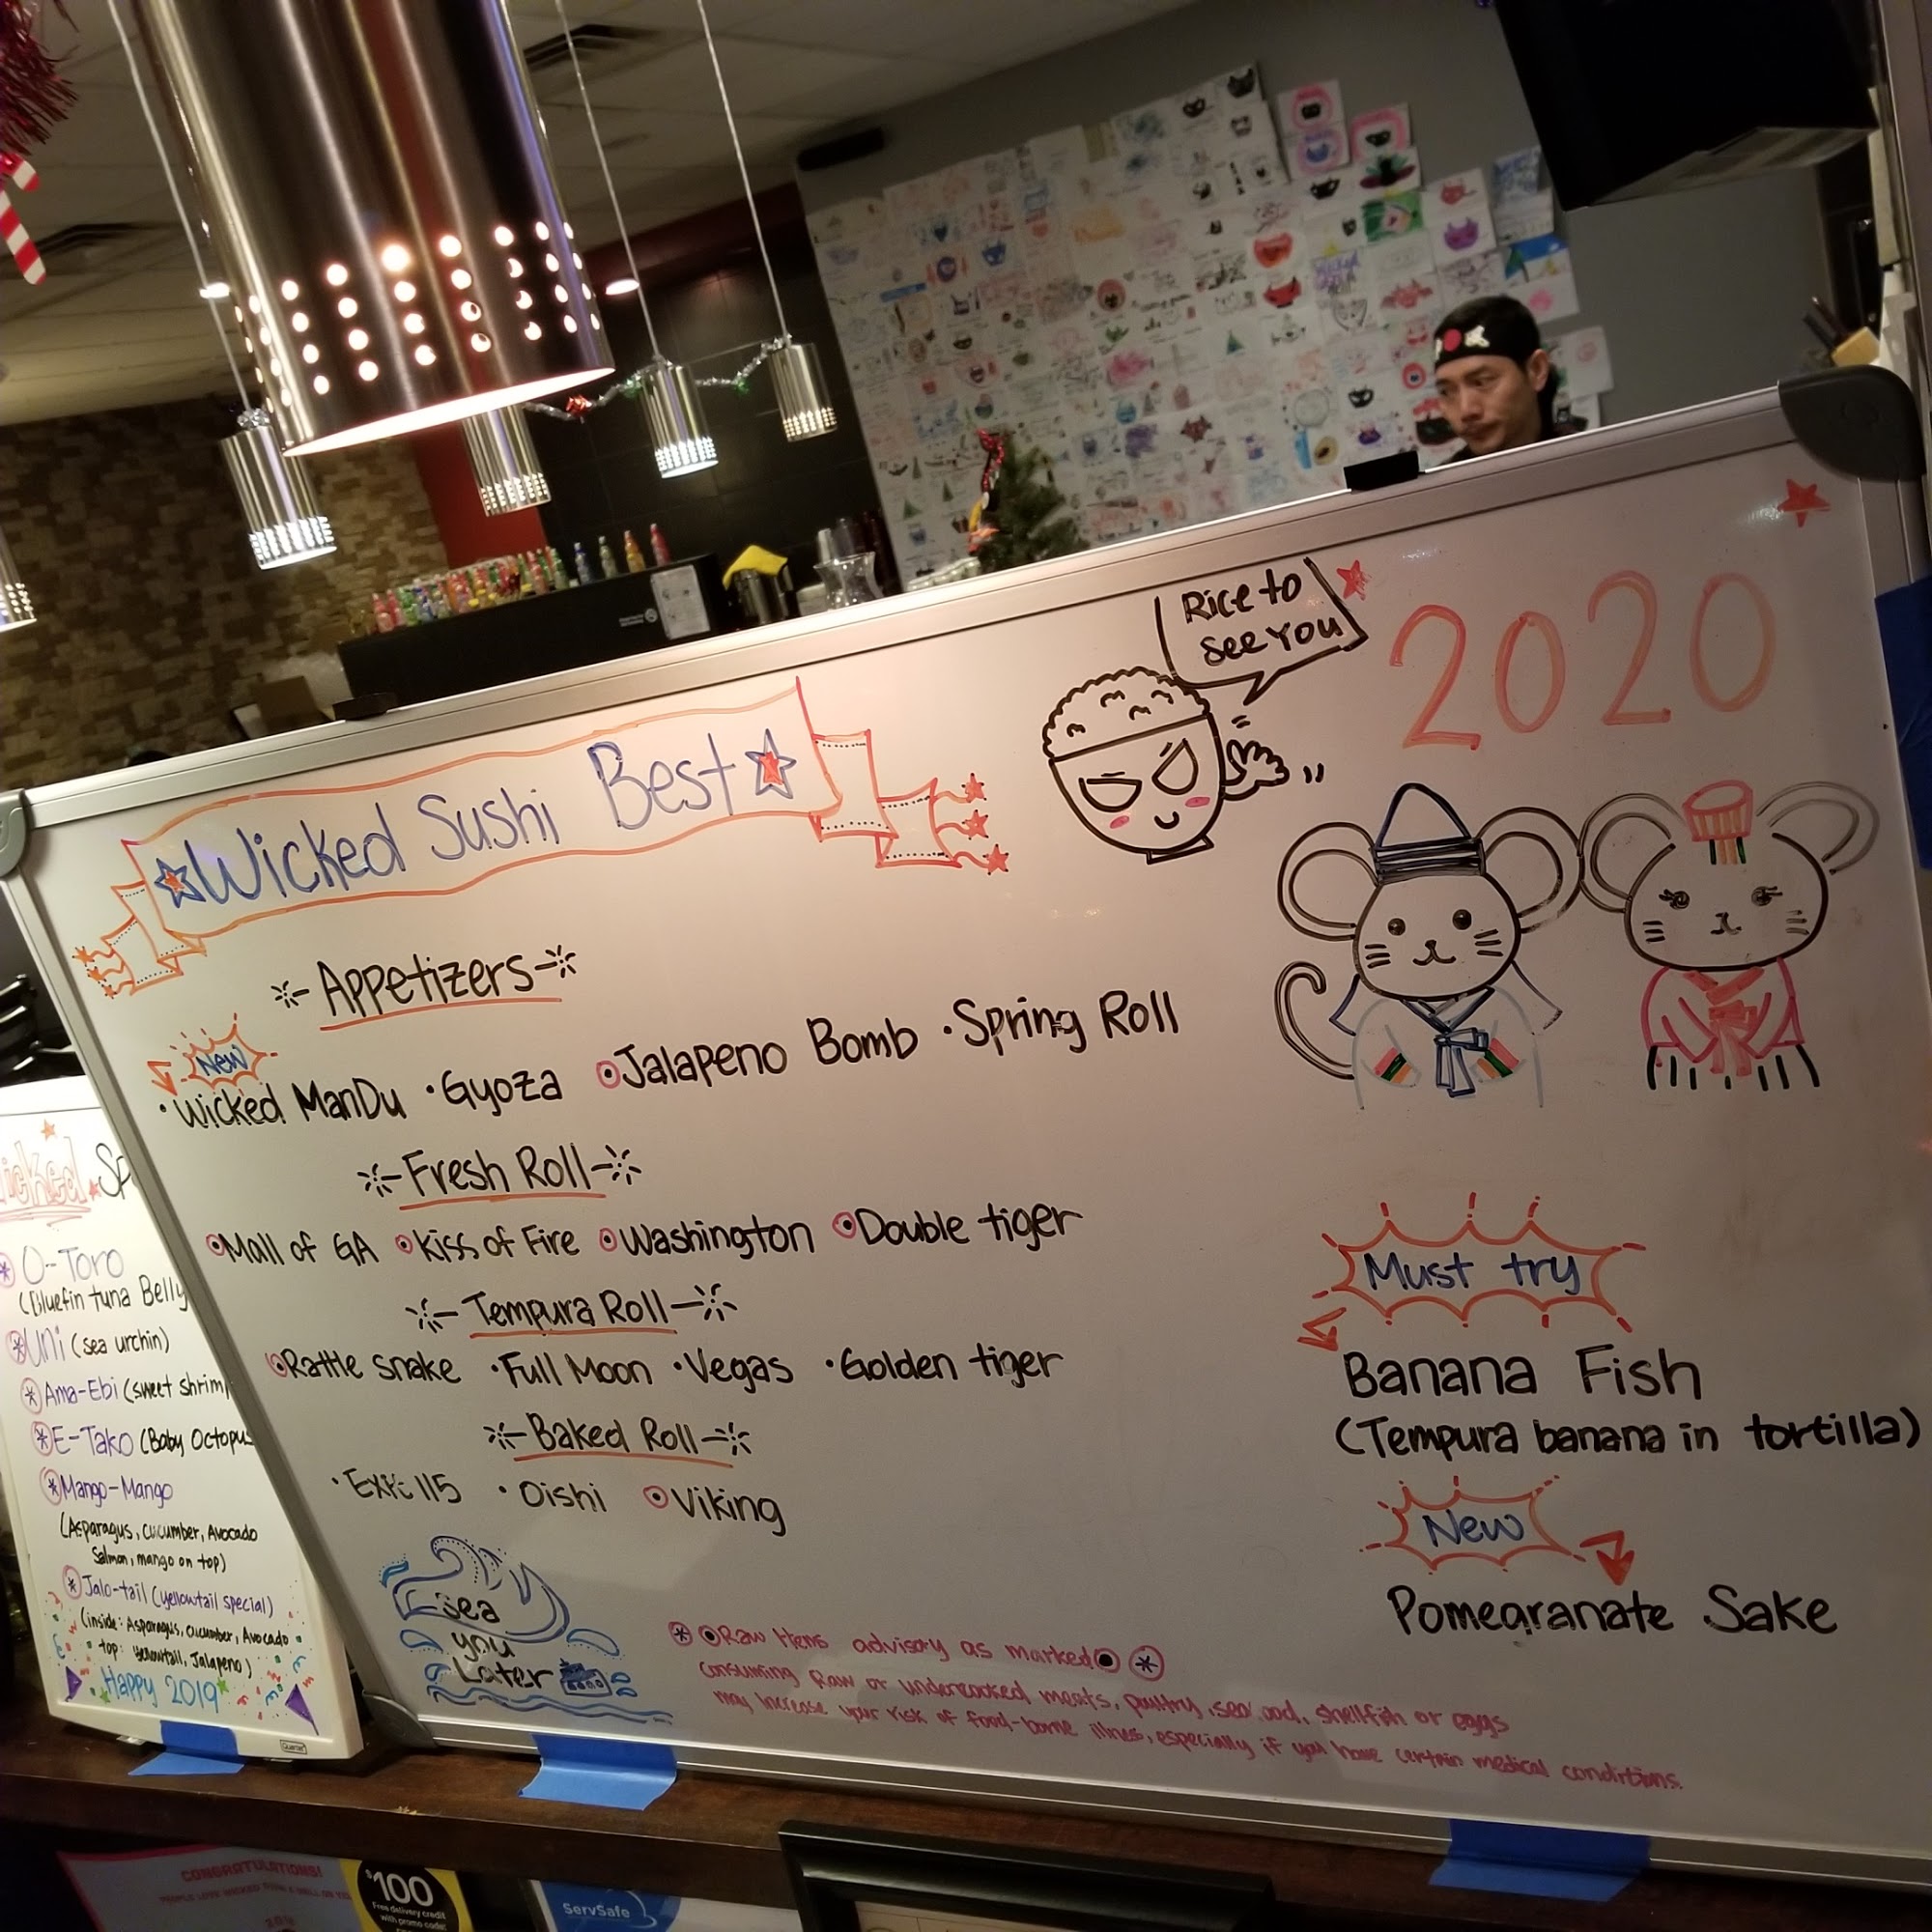 Rice to
see You
2020
Wicked Sushi Best
Appetizers
New
• Wicked ManDu • Gyoza ⊙Jalapeno Bomb • Spring Roll
Fresh Roll
⊙Mall of GA ⊙Kiss of Fire ⊙Washington ⊙Double tiger
Tempura Roll
⊙Rattle snake • Full Moon • Vegas • Golden tiger
Baked Roll
• Exit 115 • Oishi ⊙Viking
sea
you
Later
Must try
Banana Fish
(Tempura banana in tortilla)
New
Pomegranate Sake
Raw Items advisory as marked
consuming Raw or undercooked meats, poultry, seafood, shellfish or eggs
may increase your risk of food-borne illness, especially if you have certain medical conditions.
O-Toro
(Bluefin tuna Belly
Uni (sea urchin)
Ama-Ebi (sweet shrim
E-Tako (Baby Octopus
Mango-Mango
(Asparagus, cucumber, Avocado
Salmon, mango on top)
Jalo-tail (yellowtail special)
(inside: Asparagus, cucumber, Avocado
top: yellowtail, Jalapeno)
Happy 2019
Quartet
CONGRATULATIONS!
$100
Free delivery credit
with promo code:
ServSafe